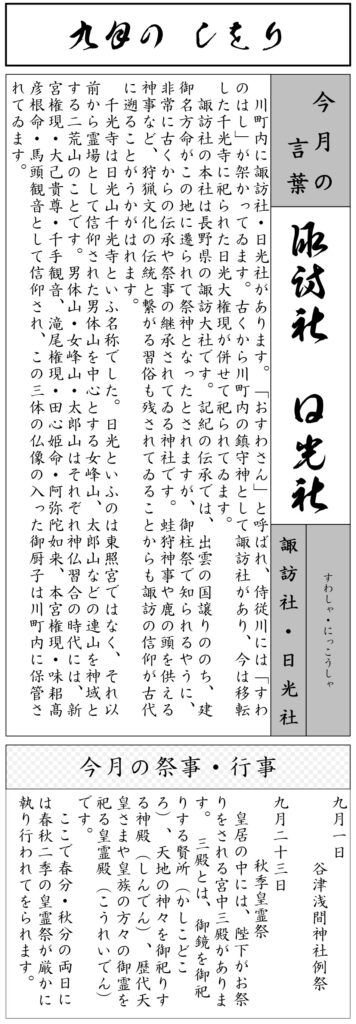 九月の しをり
今月の
言葉
諏訪社 日光社
すわしゃ・にっこうしゃ
諏訪社・日光社
川町内に諏訪社・日光社があります。「おすわさん」と呼ばれ、侍従川には「すわ
のはし」が架かってゐます。古くから川町内の鎮守神として諏訪社があり、今は移転
した千光寺に祀られた日光大権現が併せて祀られてゐます。
諏訪社の本社は長野県の諏訪大社です。記紀の伝承では、出雲の国譲りののち、建
御名方命がこの地に遷られて祭神となったとされますが、御柱祭で知られるやうに、
非常に古くからの伝承や祭事の継承されてゐる神社です。蛙狩神事や鹿の頭を供える
神事など、狩猟文化の伝統と繋がる習俗も残されてゐることからも諏訪の信仰が古代
に遡ることがうかがはれます。
千光寺は日光山千光寺といふ名称でした。日光といふのは東照宮ではなく、それ以
前から霊場として信仰された男体山を中心とする女峰山、太郎山などの連山を神域と
する二荒山のことです。男体山・女峰山・太郎山はそれぞれ神仏習合の時代には、新
宮権現・大己貴尊・千手観音、滝尾権現・田心姫命・阿弥陀如来、本宮権現・味耜高
彦根命・馬頭観音として信仰され、この三体の仏像の入った御厨子は川町内に保管さ
れてゐます。
今月の祭事・行事
九月一日
谷津浅間神社例祭
九月二十三日
秋季皇霊祭
皇居の中には、陛下がお祭
りをされる宮中三殿がありま
す。 三殿とは、御鏡を御祀
りする賢所（かしこどこ
ろ）、天地の神々を御祀りす
る神殿（しんでん）、歴代天
皇さまや皇族の方々の御霊を
祀る皇霊殿（こうれいでん）
です。
ここで春分・秋分の両日に
は春秋二季の皇霊祭が厳かに
執り行われてをられます。